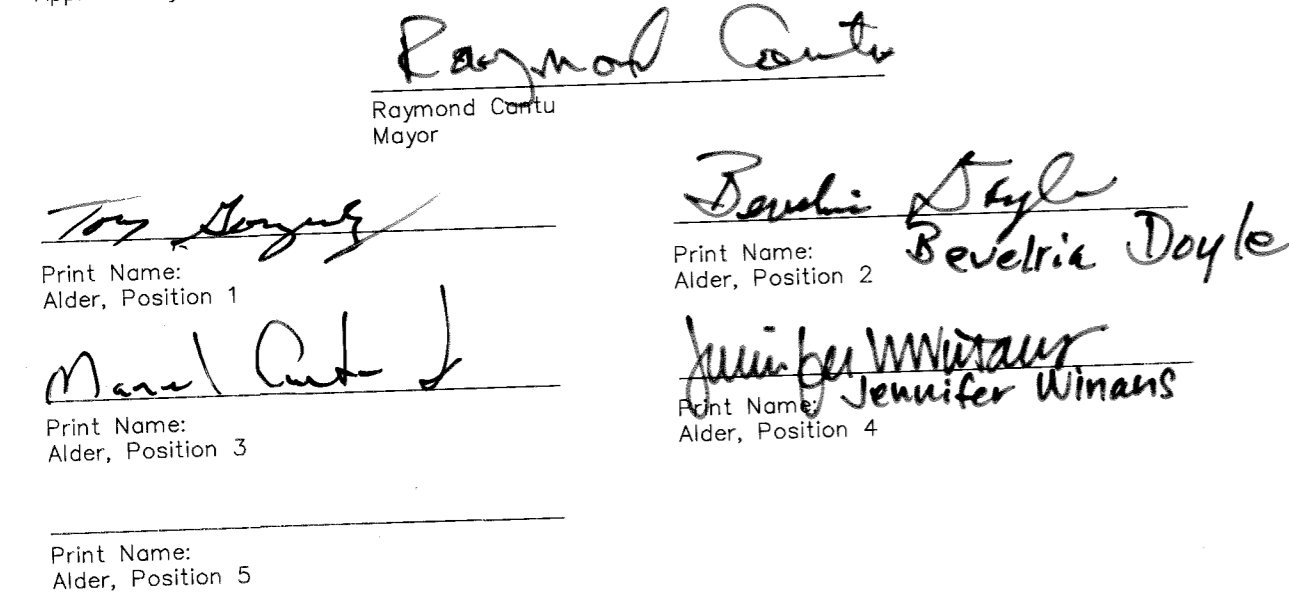 Raymond Cantu
Raymond Cantu
Mayor
Tony Gonzalez
Print Name:
Alder, Position 1
Bevelria Doyle
Print Name: Bevelria Doyle
Alder, Position 2
Manuel Cantu Jr
Print Name:
Alder, Position 3
Jennifer Winans
Print Name: Jennifer Winans
Alder, Position 4
Print Name:
Alder, Position 5